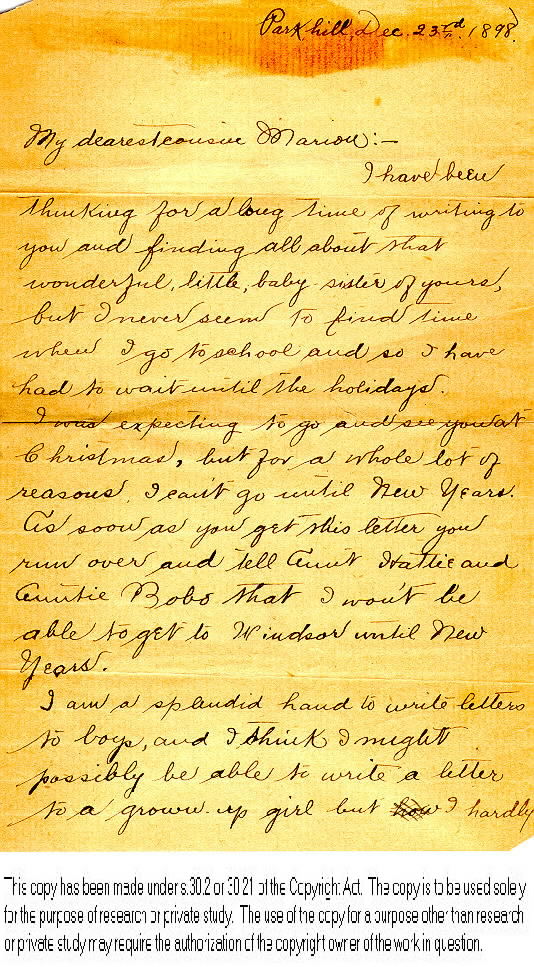 Parkhill, Dec. 23rd. 1898.
My dearest cousin Marion:-
I have been
thinking for a long time of writing to
you and finding all about that
wonderful, little, baby-sister of yours,
but I never seem to find time
when I go to school and so I have
had to wait until the holidays.
I was expecting to go and see you at
Christmas, but for a whole lot of
reasons, I can't go until New Years.
As soon as you get this letter you
run over and tell Aunt Hattie and
Auntie Bobo that I won't be
able to get to Windsor until New
Years.
I am a splendid hand to write letters
to boys, and I think I might
possibly be able to write a letter
to a grown-up girl but how I hardly
This copy has been made under s.30.2 or 30.21 of the Copyright Act. The copy is to be used solely
for the purpose of research or private study. The use of the copy for a purpose other than research
or private study may require the authorization of the copyright owner of the work in question.